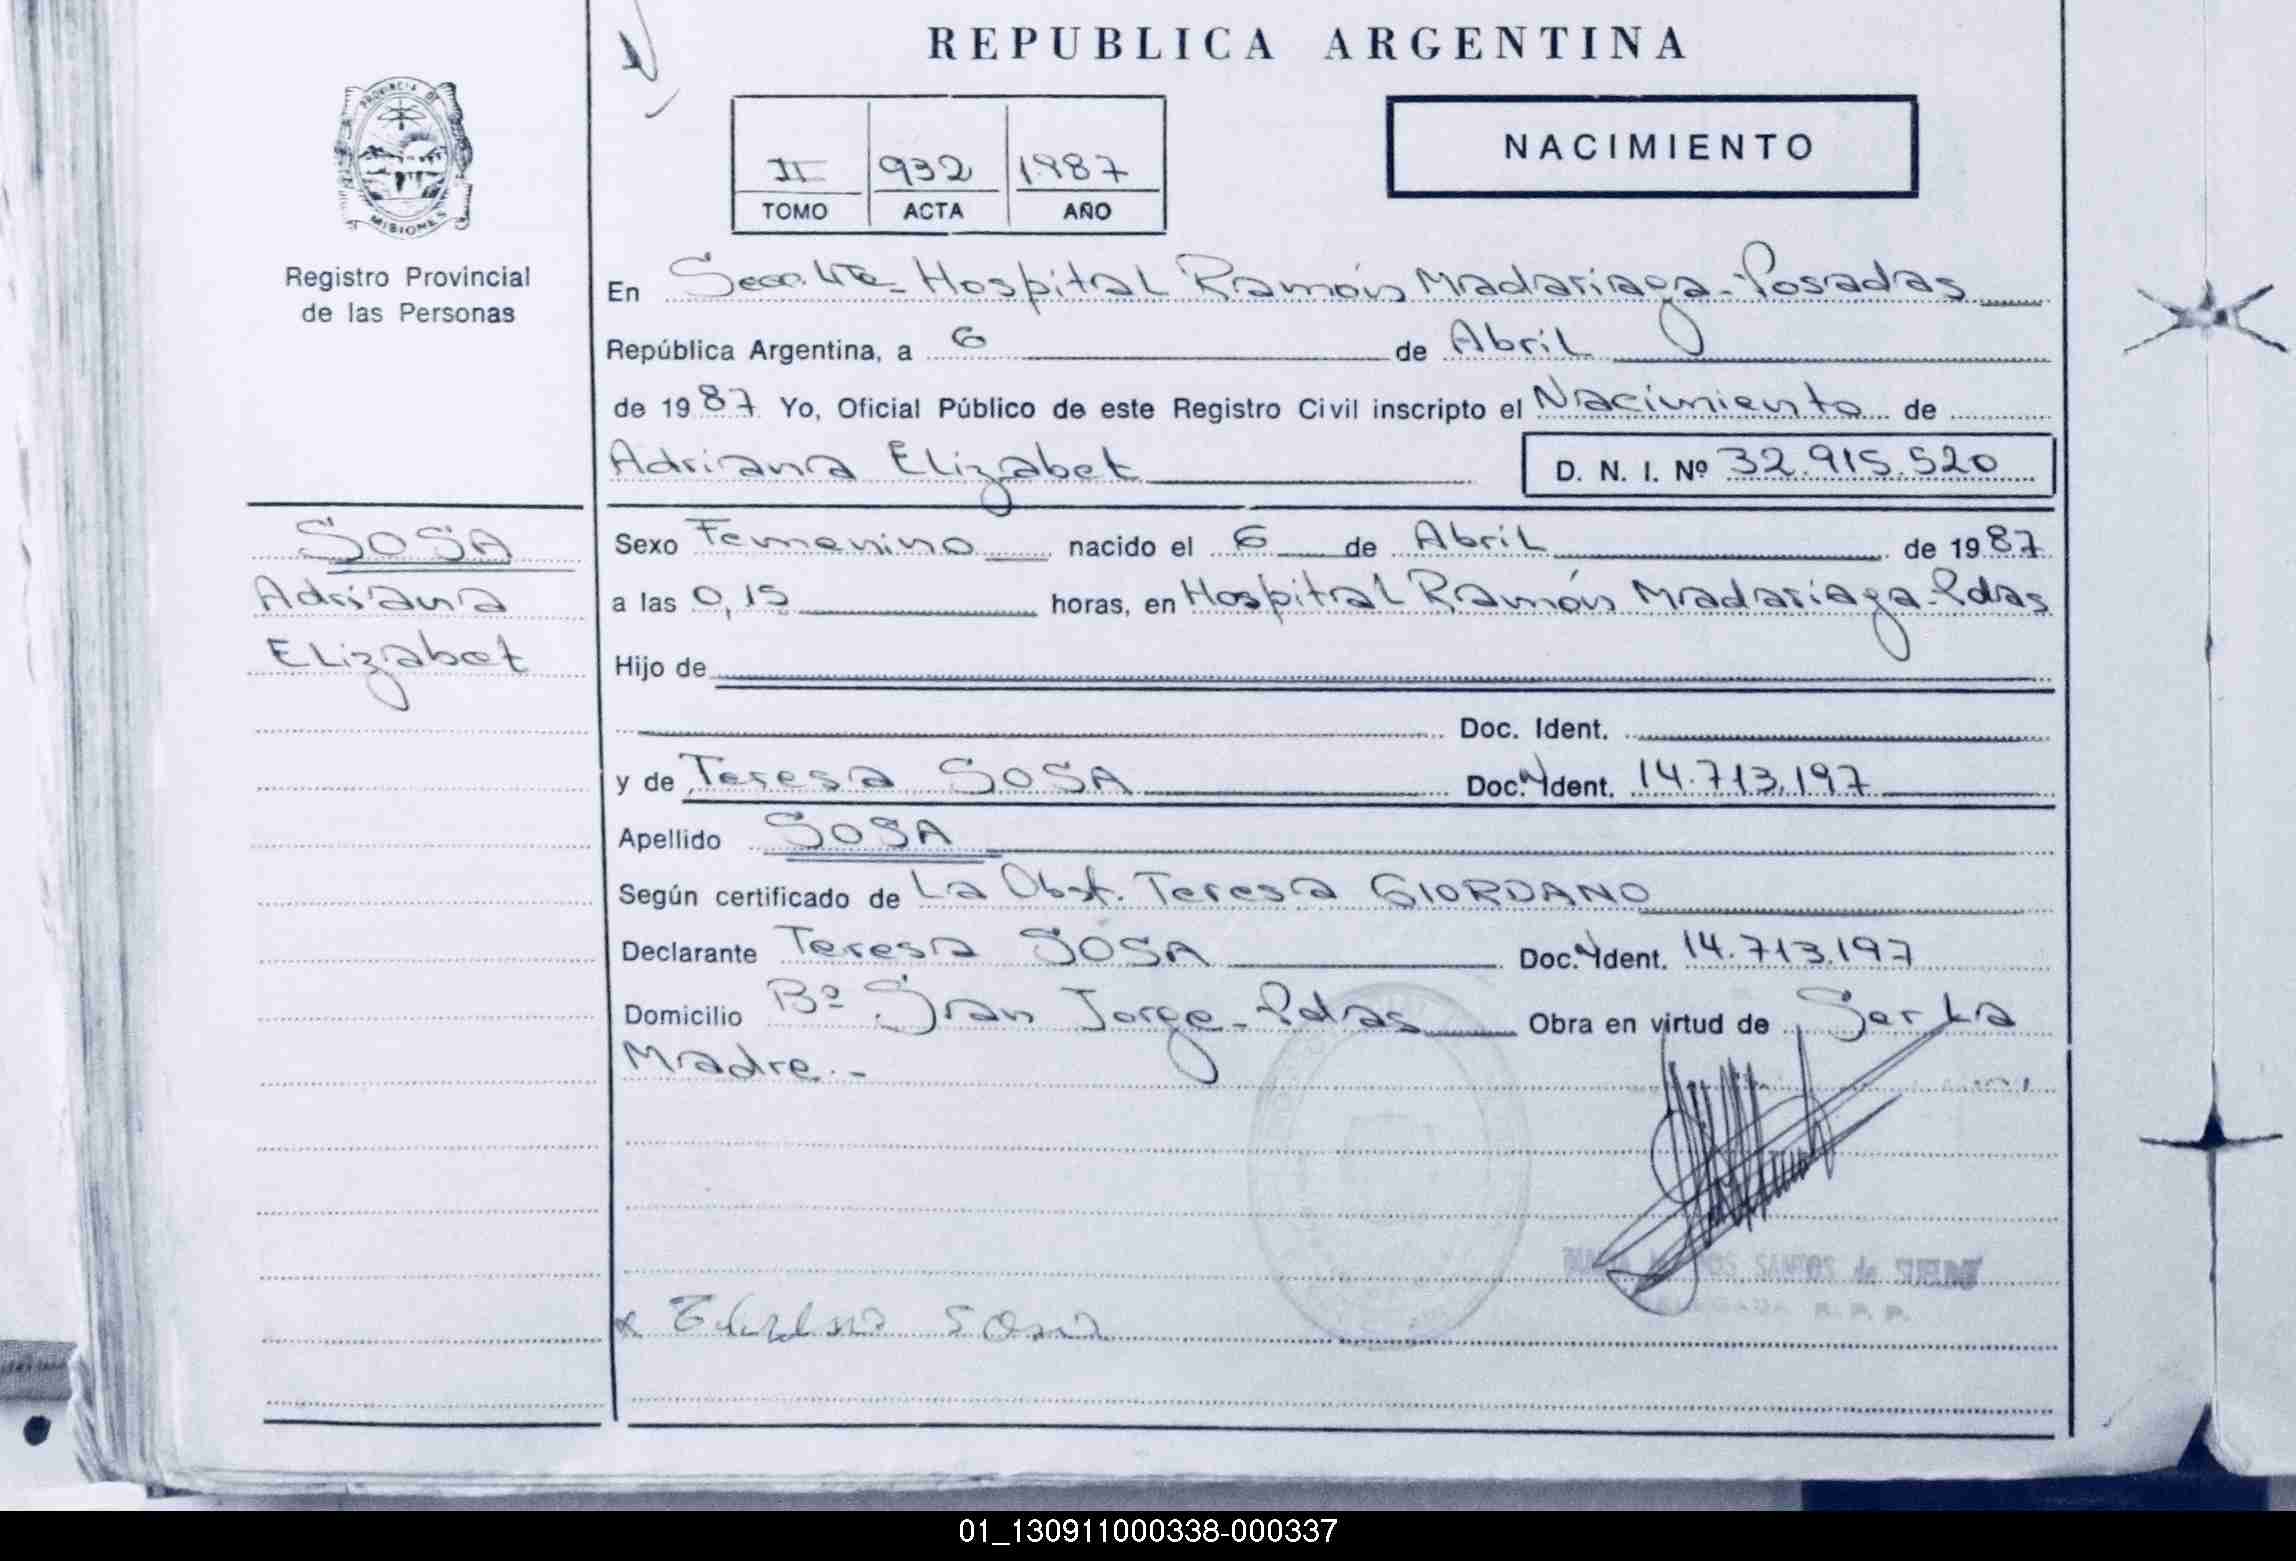 REPUBLICA ARGENTINA
PROVINCIA DE
MISIONES
Registro Provincial
de las Personas
NACIMIENTO
II 932 1987
TOMO ACTA AÑO
En Secc. 4ta - Hospital Ramón Madariaga - Posadas
República Argentina, a 6 de Abril
de 1987 Yo, Oficial Público de este Registro Civil inscripto el Nacimiento de
Adriana Elizabet D. N. I. Nº 32.915.520
SOSA
Adriana
Elizabet
Sexo Femenino nacido el 6 de Abril de 1987
a las 0,15 horas, en Hospital Ramón Madariaga - Pdas
Hijo de
Doc. Ident.
y de Teresa SOSA Doc. Ident. 14.713.197
Apellido SOSA
Según certificado de La Obst. Teresa GIORDANO
Declarante Teresa SOSA Doc. Ident. 14.713.197
Domicilio Bº San Jorge - Pdas Obra en virtud de Ser La
Madre.-
SANTOS de
R. P. P.
01_130911000338-000337